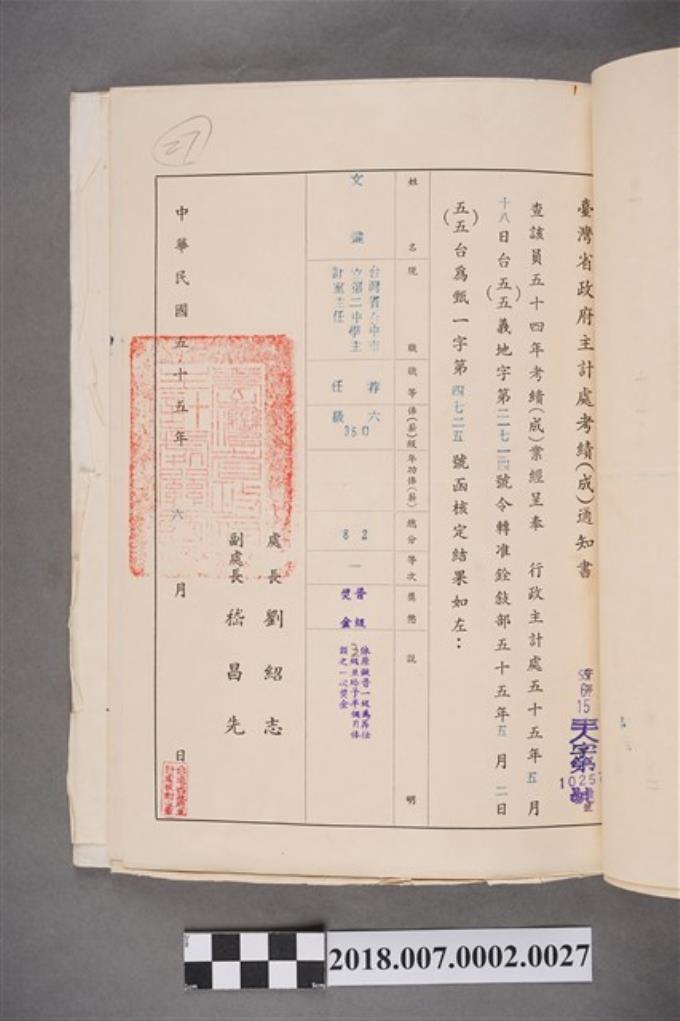 27
臺灣省政府主計處考績(成)通知書
55 6 15
主人字第
1025
號
查該員五十四年考績(成)業經呈奉 行政主計處五十五年五月
十八日台(五五)義地字第二七一四號令轉准銓敍部五十五年五月二日
(五五)台爲甄一字第四七二五號函核定結果如左：
姓名
現職
職等
俸(薪)級
年功俸(薪)
總分
等次
獎懲
說明
文
台灣省台中市
立第二中學主
計室主任
荐任
六級
350
82
一
晉級
獎金
依原敍晉一級爲荐任
級並給予半個月俸
額之一次獎金
處長 劉紹志
副處長 嵇昌先
中華民國五十五年六月 日
2018.007.0002.0027